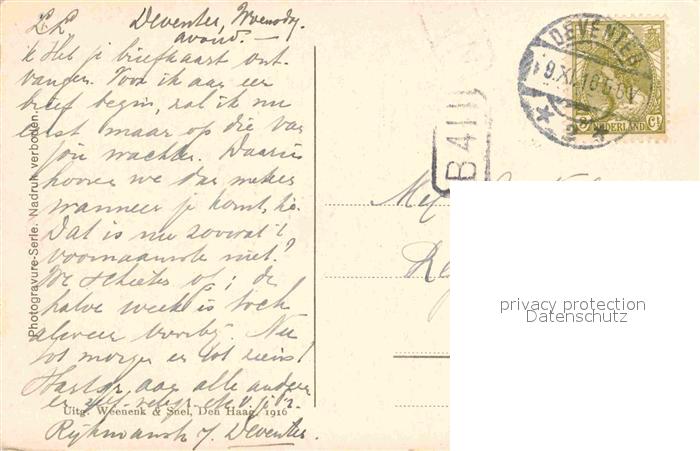 L.L. Deventer, Woensdag
avond. —
ik Heb je briefkaart ont-
vangen. Voor ik aan een
brief begin, zal ik nu
eerst maar op die van
jou wachten. Daarin
hooren we dan zeker
wanneer je komt, hè.
Dat is nu zoowat 't
voornaamste niet?
We schieten op; de
halve week is toch
alweer voorbij. Nu
tot morgen en tot ziens!
Hartgr. aan alle andere
Deventer.
Photogravure-Serie. Nadruk verboden.
Uitg. Weenenk & Snel, Den Haag, 1916
DEVENTER
NEDERLAND
Ct
B411
Mej
privacy protection
Datenschutz